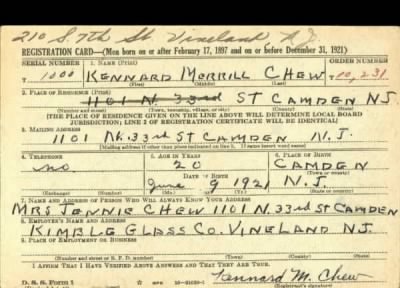 210 S. 7th St Vineland N.J.
REGISTRATION CARD—(Men born on or after February 17, 1897 and on or before December 31, 1921)
SERIAL NUMBER 1. NAME (Print) ORDER NUMBER
T 1000 KENNARD MERRILL CHEW T 10,231
(First) (Middle) (Last)
2. PLACE OF RESIDENCE (Print)
1101 N. 33rd ST CAMDEN N.J.
(Number and street) (Town, township, village, or city) (County) (State)
[THE PLACE OF RESIDENCE GIVEN ON THE LINE ABOVE WILL DETERMINE LOCAL BOARD
JURISDICTION; LINE 2 OF REGISTRATION CERTIFICATE WILL BE IDENTICAL]
3. MAILING ADDRESS
1101 N. 33rd ST CAMDEN N.J.
[Mailing address if other than place indicated on line 2. If same insert word same]
4. TELEPHONE 5. AGE IN YEARS 6. PLACE OF BIRTH
no 20 CAMDEN
DATE OF BIRTH
June 9 1921 N.J.
(Exchange) (Number) (Mo.) (Day) (Yr.) (State or country)
7. NAME AND ADDRESS OF PERSON WHO WILL ALWAYS KNOW YOUR ADDRESS
MRS JENNIE CHEW 1101 N. 33rd St CAMDEN
8. EMPLOYER'S NAME AND ADDRESS
KIMBLE GLASS CO. VINELAND N.J.
9. PLACE OF EMPLOYMENT OR BUSINESS
(Number and street or R. F. D. number) (Town) (County) (State)
I AFFIRM THAT I HAVE VERIFIED ABOVE ANSWERS AND THAT THEY ARE TRUE.
D. S. S. Form 1 Kennard M. Chew
(Registrant's signature)